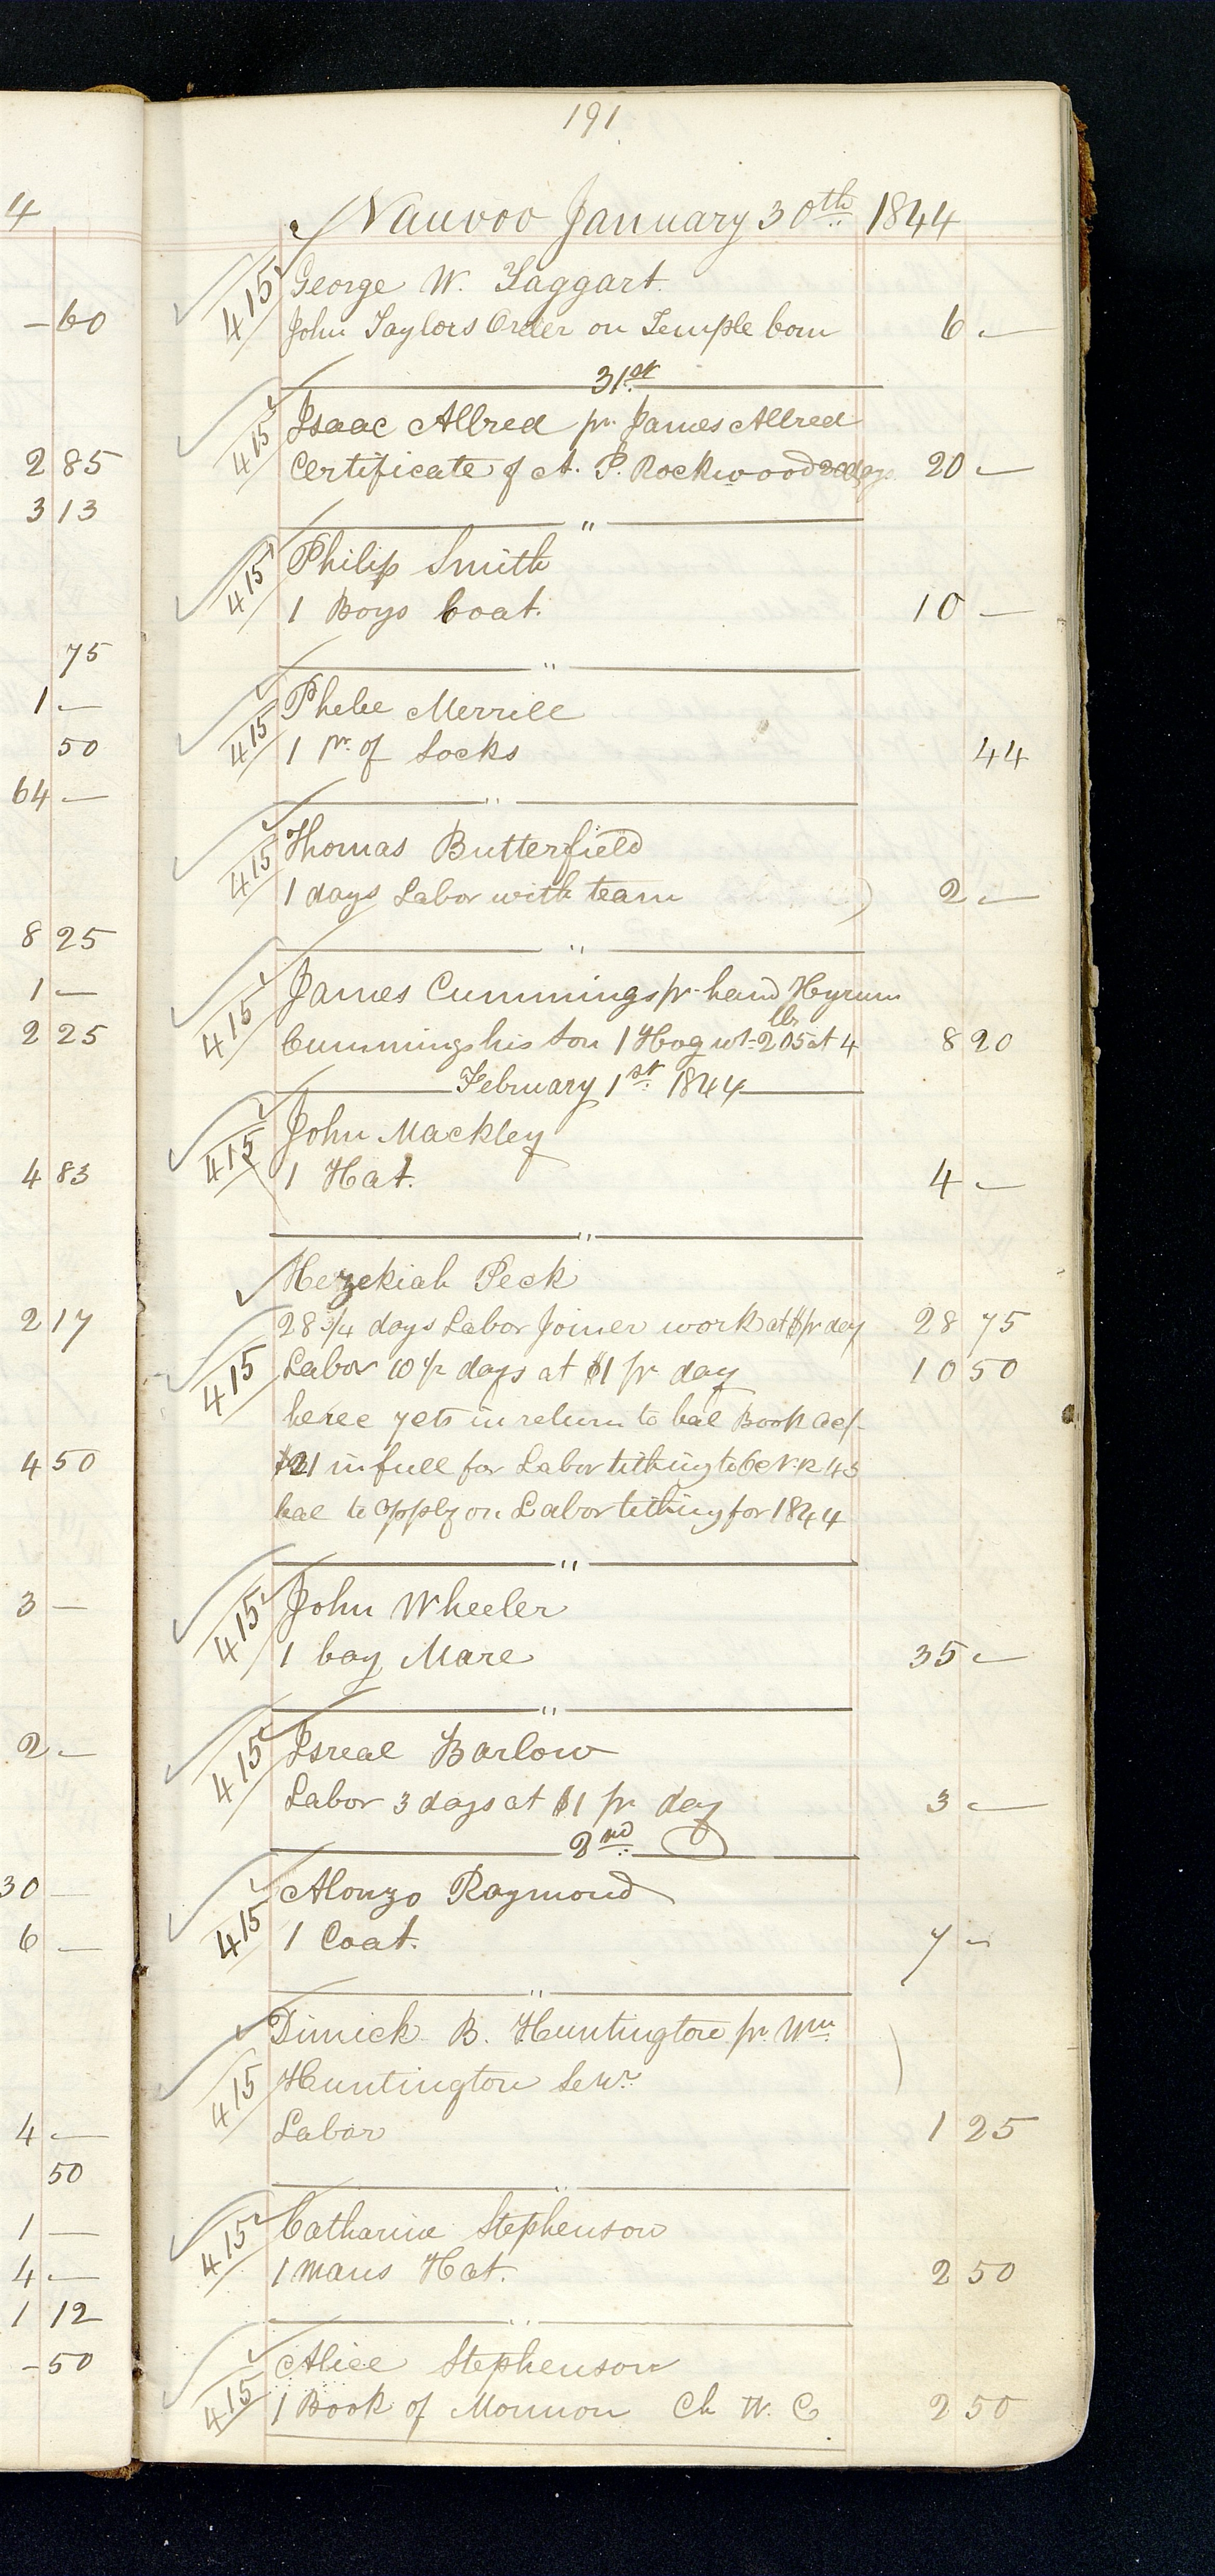 191
Nauvoo January 30th 1844
415 George W. Taggart
John Taylors Order on Temple Com 6 —
31st
415 Isaac Allred pr James Allred
Certificate of A. P. Rockwood 20 days 20 —
"
415 Philip Smith
1 Boys Coat. 10 —
"
415 Phebe Merrill
1 pr of Socks 44
"
415 Thomas Butterfield
1 days Labor with team 2 —
"
415 James Cummings pr hand Hyrum
Cummings his Son 1 Hog wt 205 lbs at 4 8 20
February 1st 1844
415 John Mackley
1 Hat. 4 —
"
Hezekiah Peck
28 3/4 days Labor Joiner work at $1 pr day 28 75
415 Labor 10 1/2 days at $1 pr day 10 50
in return to bal Book
$21 in full for Labor tithing to 43
bal to apply on Labor tithing for 1844
"
415 John Wheeler
1 bay Mare 35 —
"
415 Isreal Barlow
Labor 3 days at $1 pr day 3 —
2nd
415 Alonzo Raymond
1 Coat. 7 —
"
Dimick B. Huntington pr Wm
415 Huntington Senr
Labor 1 25
"
415 Catharine Stephenson
1 Mans Hat. 2 50
"
Alice Stephenson
415 1 Book of Mormon Ch W. C 2 50
4
— 60
2 85
3 13
75
1 —
50
64 —
8 25
1 —
2 25
4 83
2 17
4 50
3 —
2 —
30 —
6 —
4 —
50
1 —
4 —
1 12
— 50